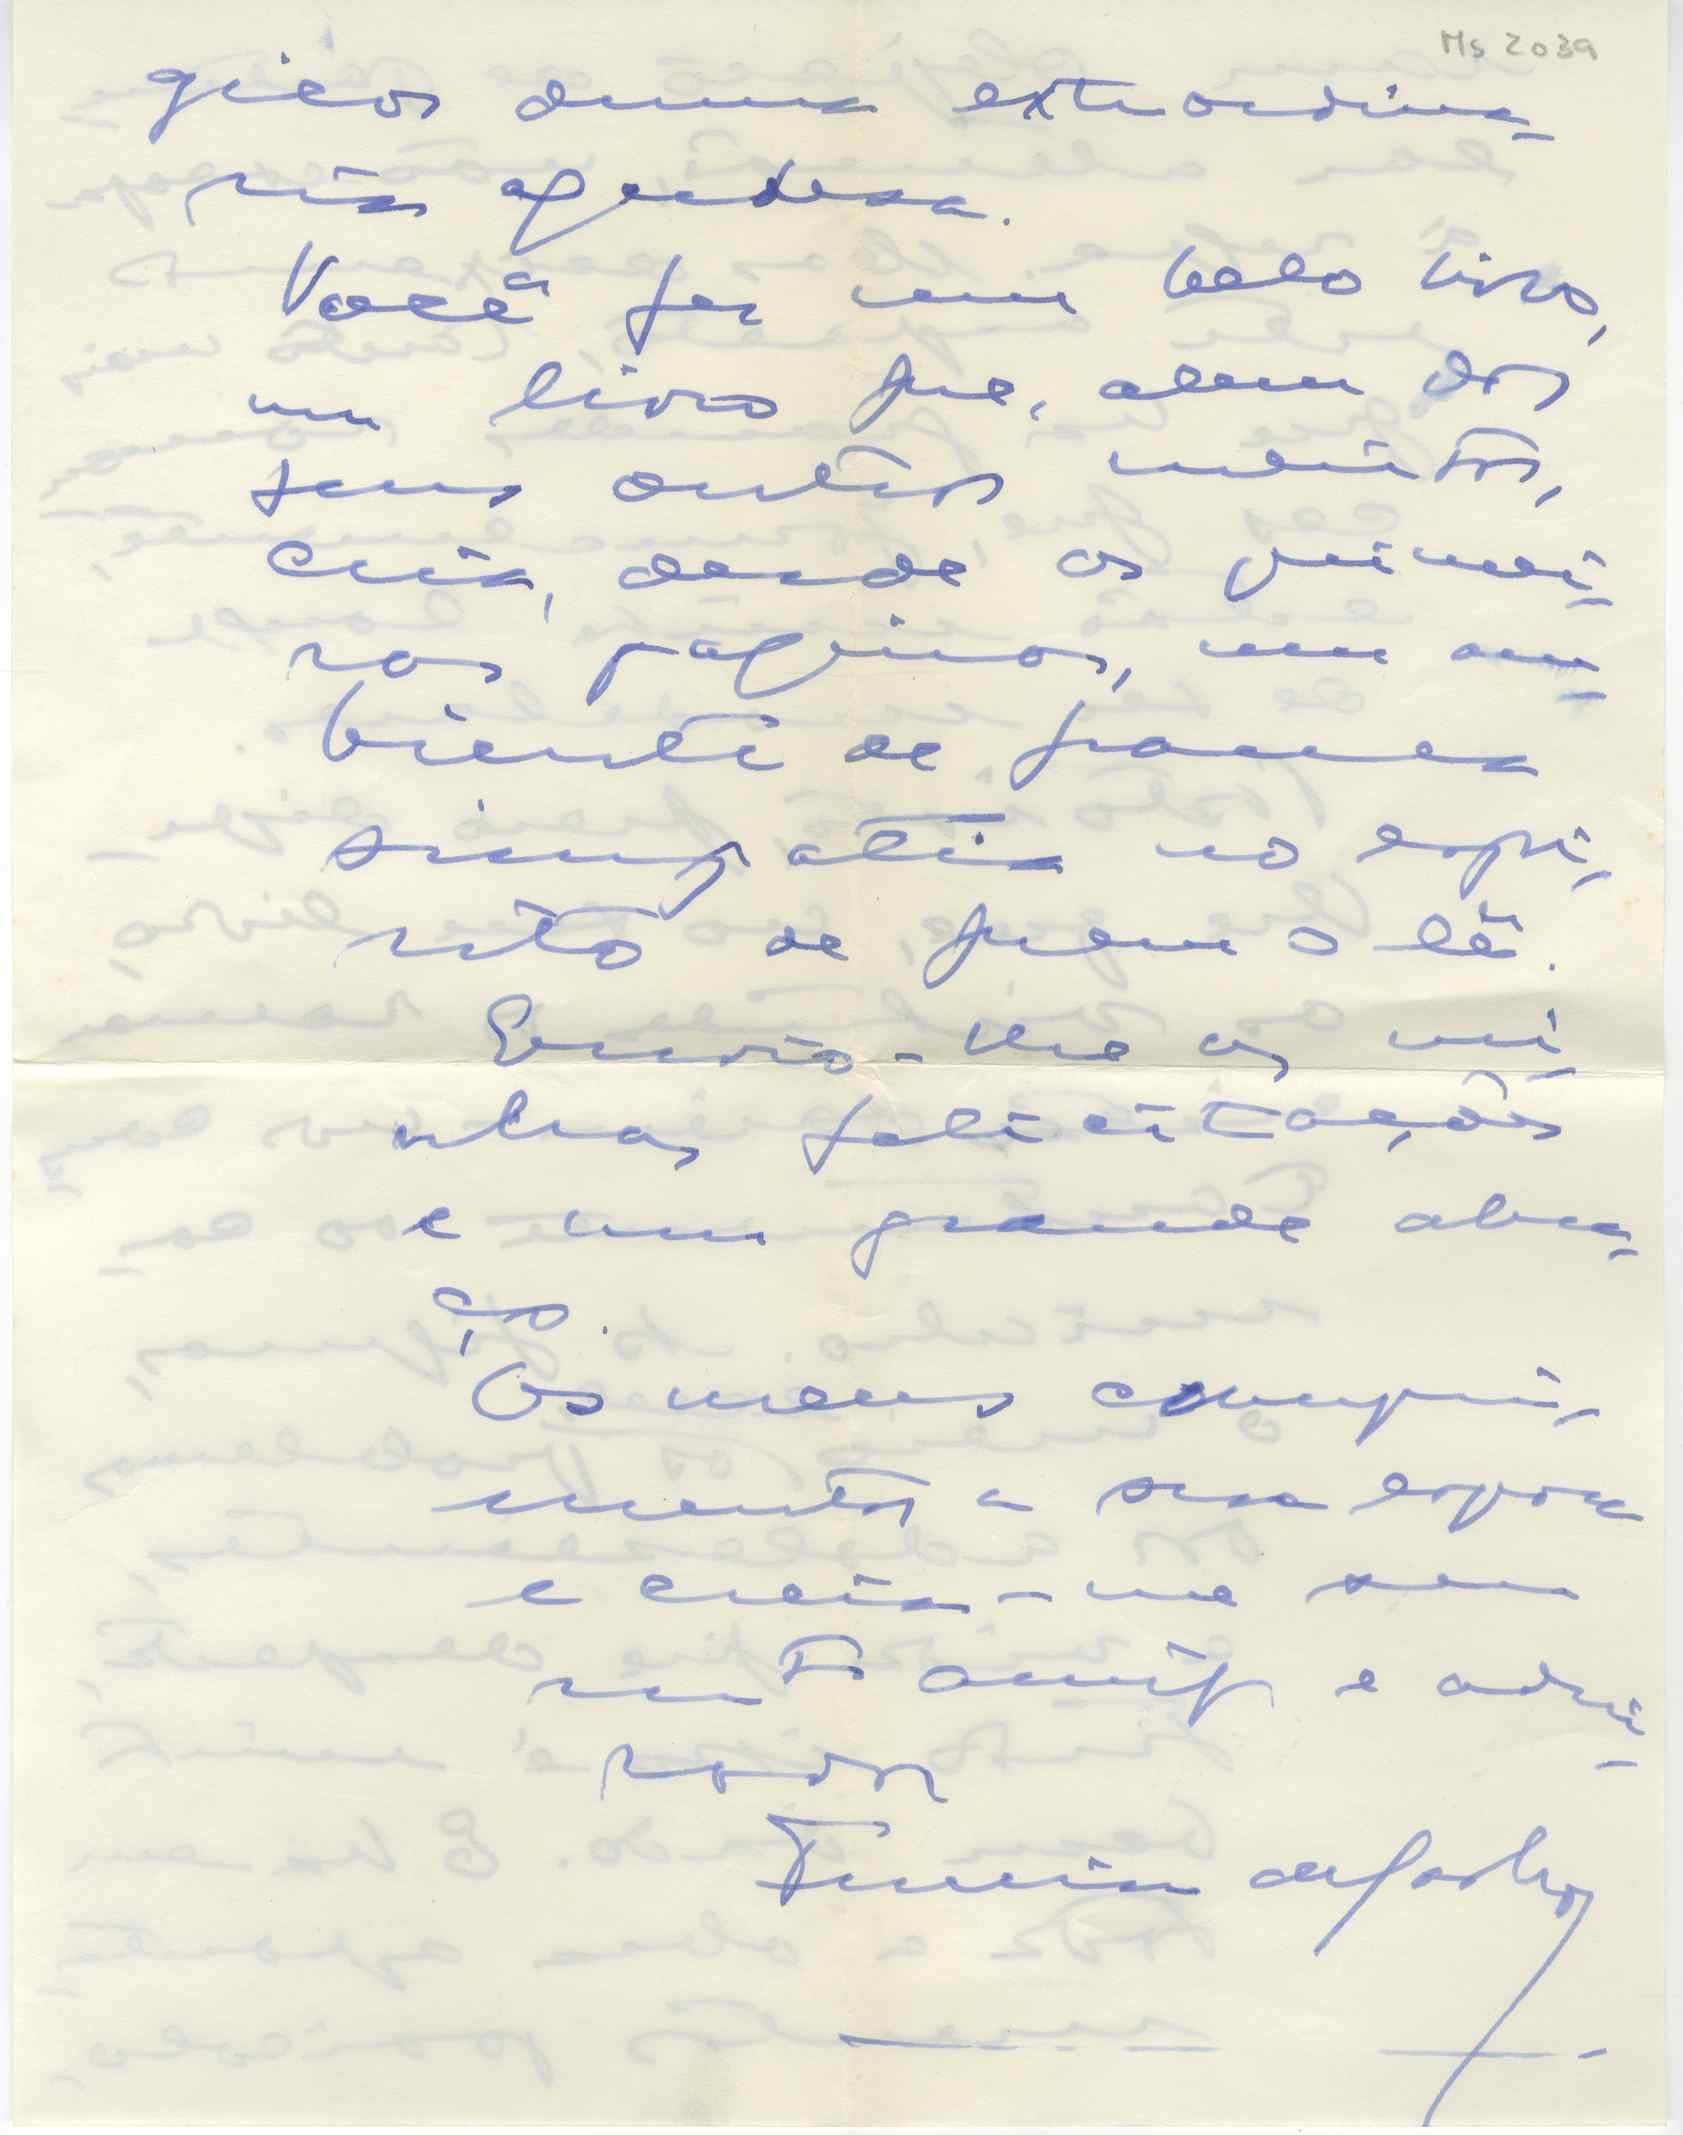 Ms 2039
gicos duma extraordina-
ria agudesa.
Você fez um belo livro,
um livro que, alem dos
seus outros meritos,
cria, desde as primei-
ras paginas, um am-
biente de franca
simpatia no espi-
rito de quem o lê.
Envio-lhe as mi-
nhas felicitações
e um grande abra-
ço.
Os meus cumpri-
mentos a sua esposa
e creia-me seu
mto amigo e admi-
rador
Ferreira de Castro